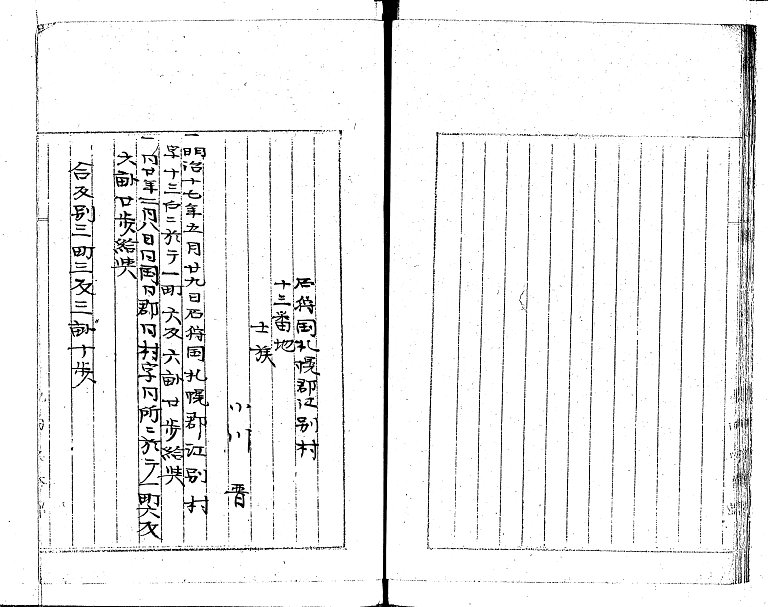 石狩国札幌郡江別村
十三番地
士族
小川 晋
一明治十七年五月廿九日石狩国札幌郡江別村
字十三戸ニ於テ一町六反六畝廿歩給與
一同廿年二月八日同国同郡同村字同所ニ於テ一町六反
六畝廿歩給與
合反別三町三反三畝十歩